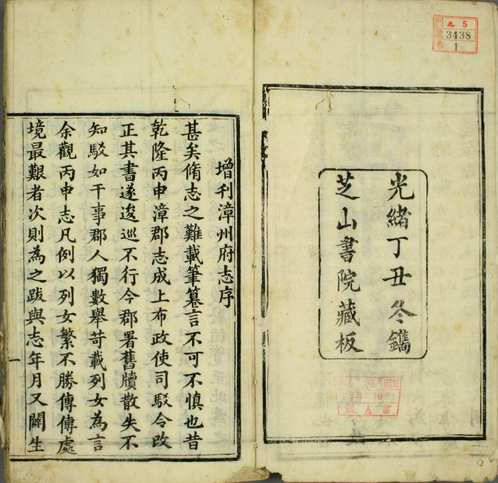 光緒丁丑冬鐫
芝山書院藏板
增刊漳州府志序
甚矣脩志之難載筆纂言不可不慎也昔
乾隆丙申漳郡志成上布政使司駁令改
正其書遂逡巡不行今郡署舊牘散失不
知駁如干事郡人獨數舉苛載列女為言
余觀丙申志凡例以列女繁不勝傳傳處
境最艱者次則為之跋與志年月又闕生
一
5
3438
1